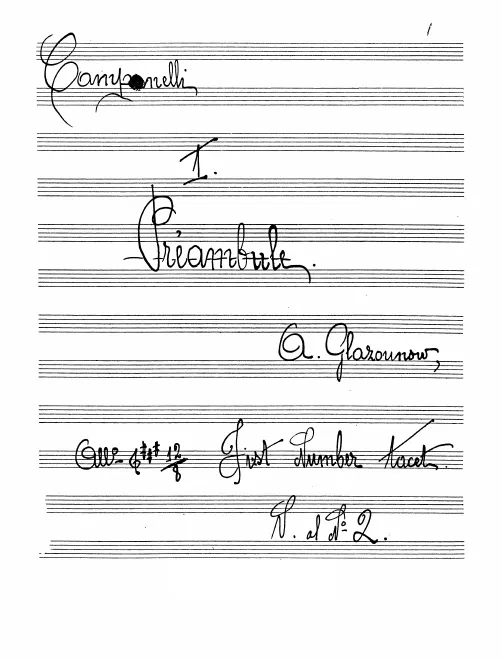 1
Campanelli
I.
Préambule.
A. Glazounow,
All⁰ 12/8 First Number tacet.
V. al Nº 2.